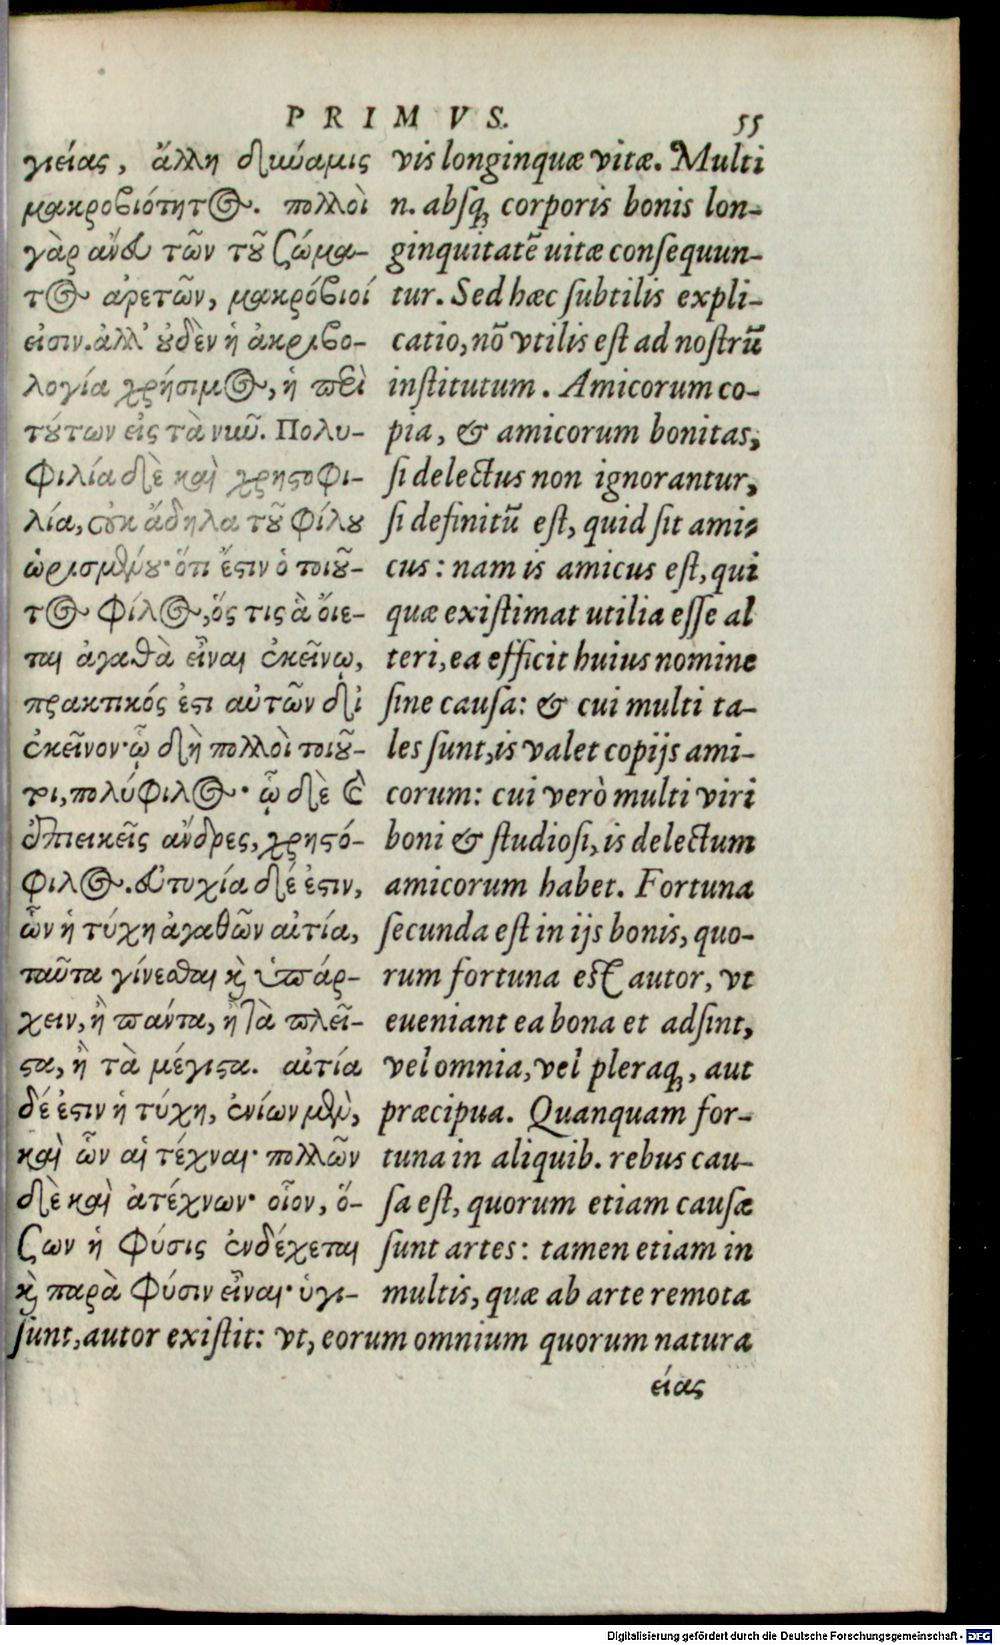 PRIMVS.
55
γιείας, ἄλλη δύναμις
μακροβιότητος. πολλοὶ
γὰρ ἄνευ τῶν τοῦ σώμα-
τος ἀρετῶν, μακρόβιοί
εἰσιν. ἀλλ' οὐδὲν ἡ ἀκριβο-
λογία χρήσιμος, ἡ περὶ
τούτων εἰς τὰ νῦν. Πολυ-
φιλία δὲ καὶ χρηστοφι-
λία, οὐκ ἄδηλα τοῦ φίλου
ὡρισμένου· ὅτι ἔστιν ὁ τοιοῦ-
τος φίλος, ὅς τις ἃ οἴε-
ται ἀγαθὰ εἶναι ἐκείνῳ,
πρακτικός ἐστι αὐτῶν δι
ἐκεῖνον· ᾧ δὴ πολλοὶ τοιοῦ-
τοι, πολύφιλος· ᾧ δὲ καὶ
ἐπιεικεῖς ἄνδρες, χρηστό-
φιλος. εὐτυχία δέ ἐστιν,
ὧν ἡ τύχη ἀγαθῶν αἰτία,
ταῦτα γίνεσθαι καὶ ὑπάρ-
χειν, ἢ πάντα, ἢ τὰ πλεῖ-
στα, ἢ τὰ μέγιστα. αἰτία
δέ ἐστιν ἡ τύχη, ἐνίων μὲν,
καὶ ὧν αἱ τέχναι· πολλῶν
δὲ καὶ ἀτέχνων· οἷον, ὅ-
σων ἡ φύσις ἐνδέχεται
καὶ παρὰ φύσιν εἶναι· ὑγι-
vis longinquæ vitæ. Multi
n. absq; corporis bonis lon-
ginquitatē uitæ consequun-
tur. Sed hæc subtilis expli-
catio, nō vtilis est ad nostrū
institutum. Amicorum co-
pia, & amicorum bonitas,
si delectus non ignorantur,
si definitū est, quid sit ami-
cus: nam is amicus est, qui
quæ existimat utilia esse al
teri, ea efficit huius nomine
sine causa: & cui multi ta-
les sunt, is valet copijs ami-
corum: cui verò multi viri
boni & studiosi, is delectum
amicorum habet. Fortuna
secunda est in ijs bonis, quo-
rum fortuna est autor, vt
eueniant ea bona et adsint,
vel omnia, vel pleraq;, aut
præcipua. Quanquam for-
tuna in aliquib. rebus cau-
sa est, quorum etiam causæ
sunt artes: tamen etiam in
multis, quæ ab arte remota
sunt, autor existit: vt, eorum omnium quorum natura
είας
Digitalisierung gefördert durch die Deutsche Forschungsgemeinschaft - DFG